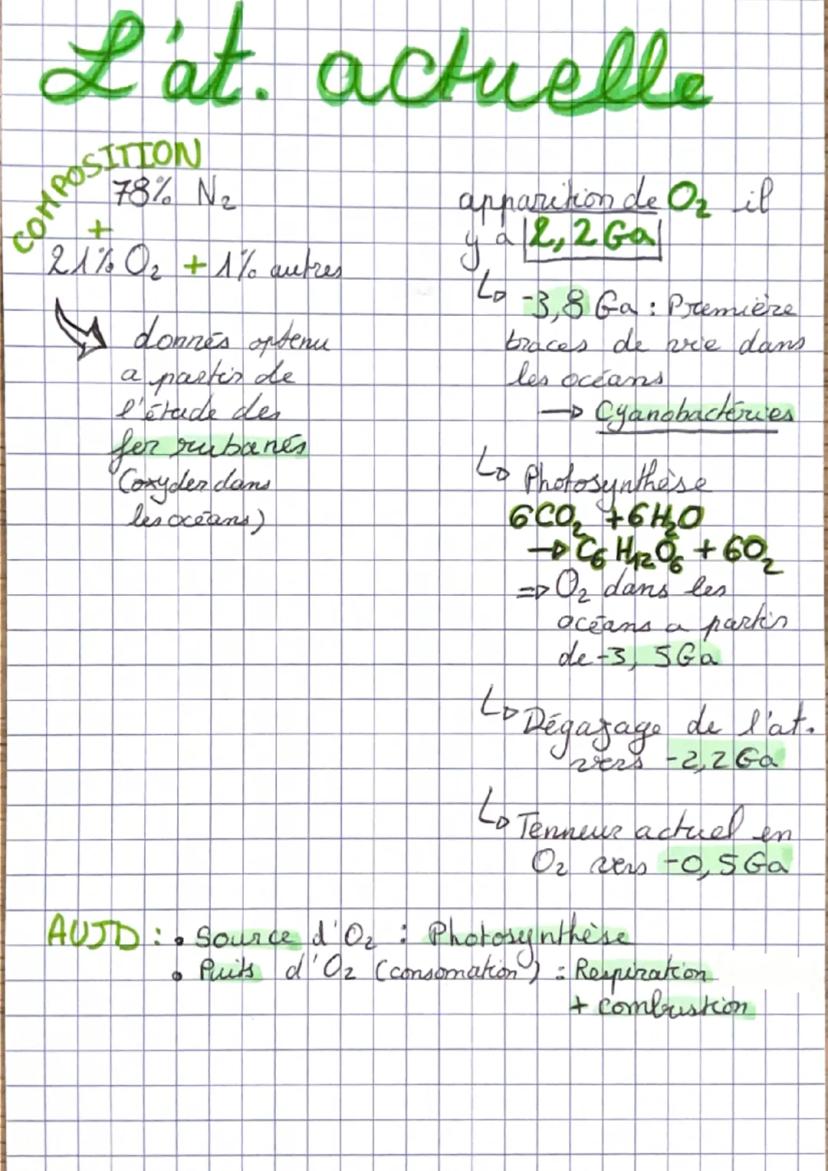 L'at. actuelle
COMPOSITION
78% N₂
+
21% O₂ + 1% autres
donnés optenu
a partir de
l'étude des
fer rubanés
(oxyder dans
les océans)
apparition de O₂ il
y a 2,2 Ga
↳ -3,8 Ga : Première
traces de vie dans
les océans
→ Cyanobactéries
↳ Photosynthèse
6CO₂ + 6H₂O
→ C₆H₁₂O₆ + 6O₂
⇒ O₂ dans les
océans a partir
de -3,5Ga
↳ Dégazage de l'at.
vers -2,2 Ga
↳ Tenneur actuel en
O₂ vers -0,5 Ga
AUJD : • Source d'O₂ : Photosynthèse
• Puits d'O₂ (consomation) : Respiration
+ combustion